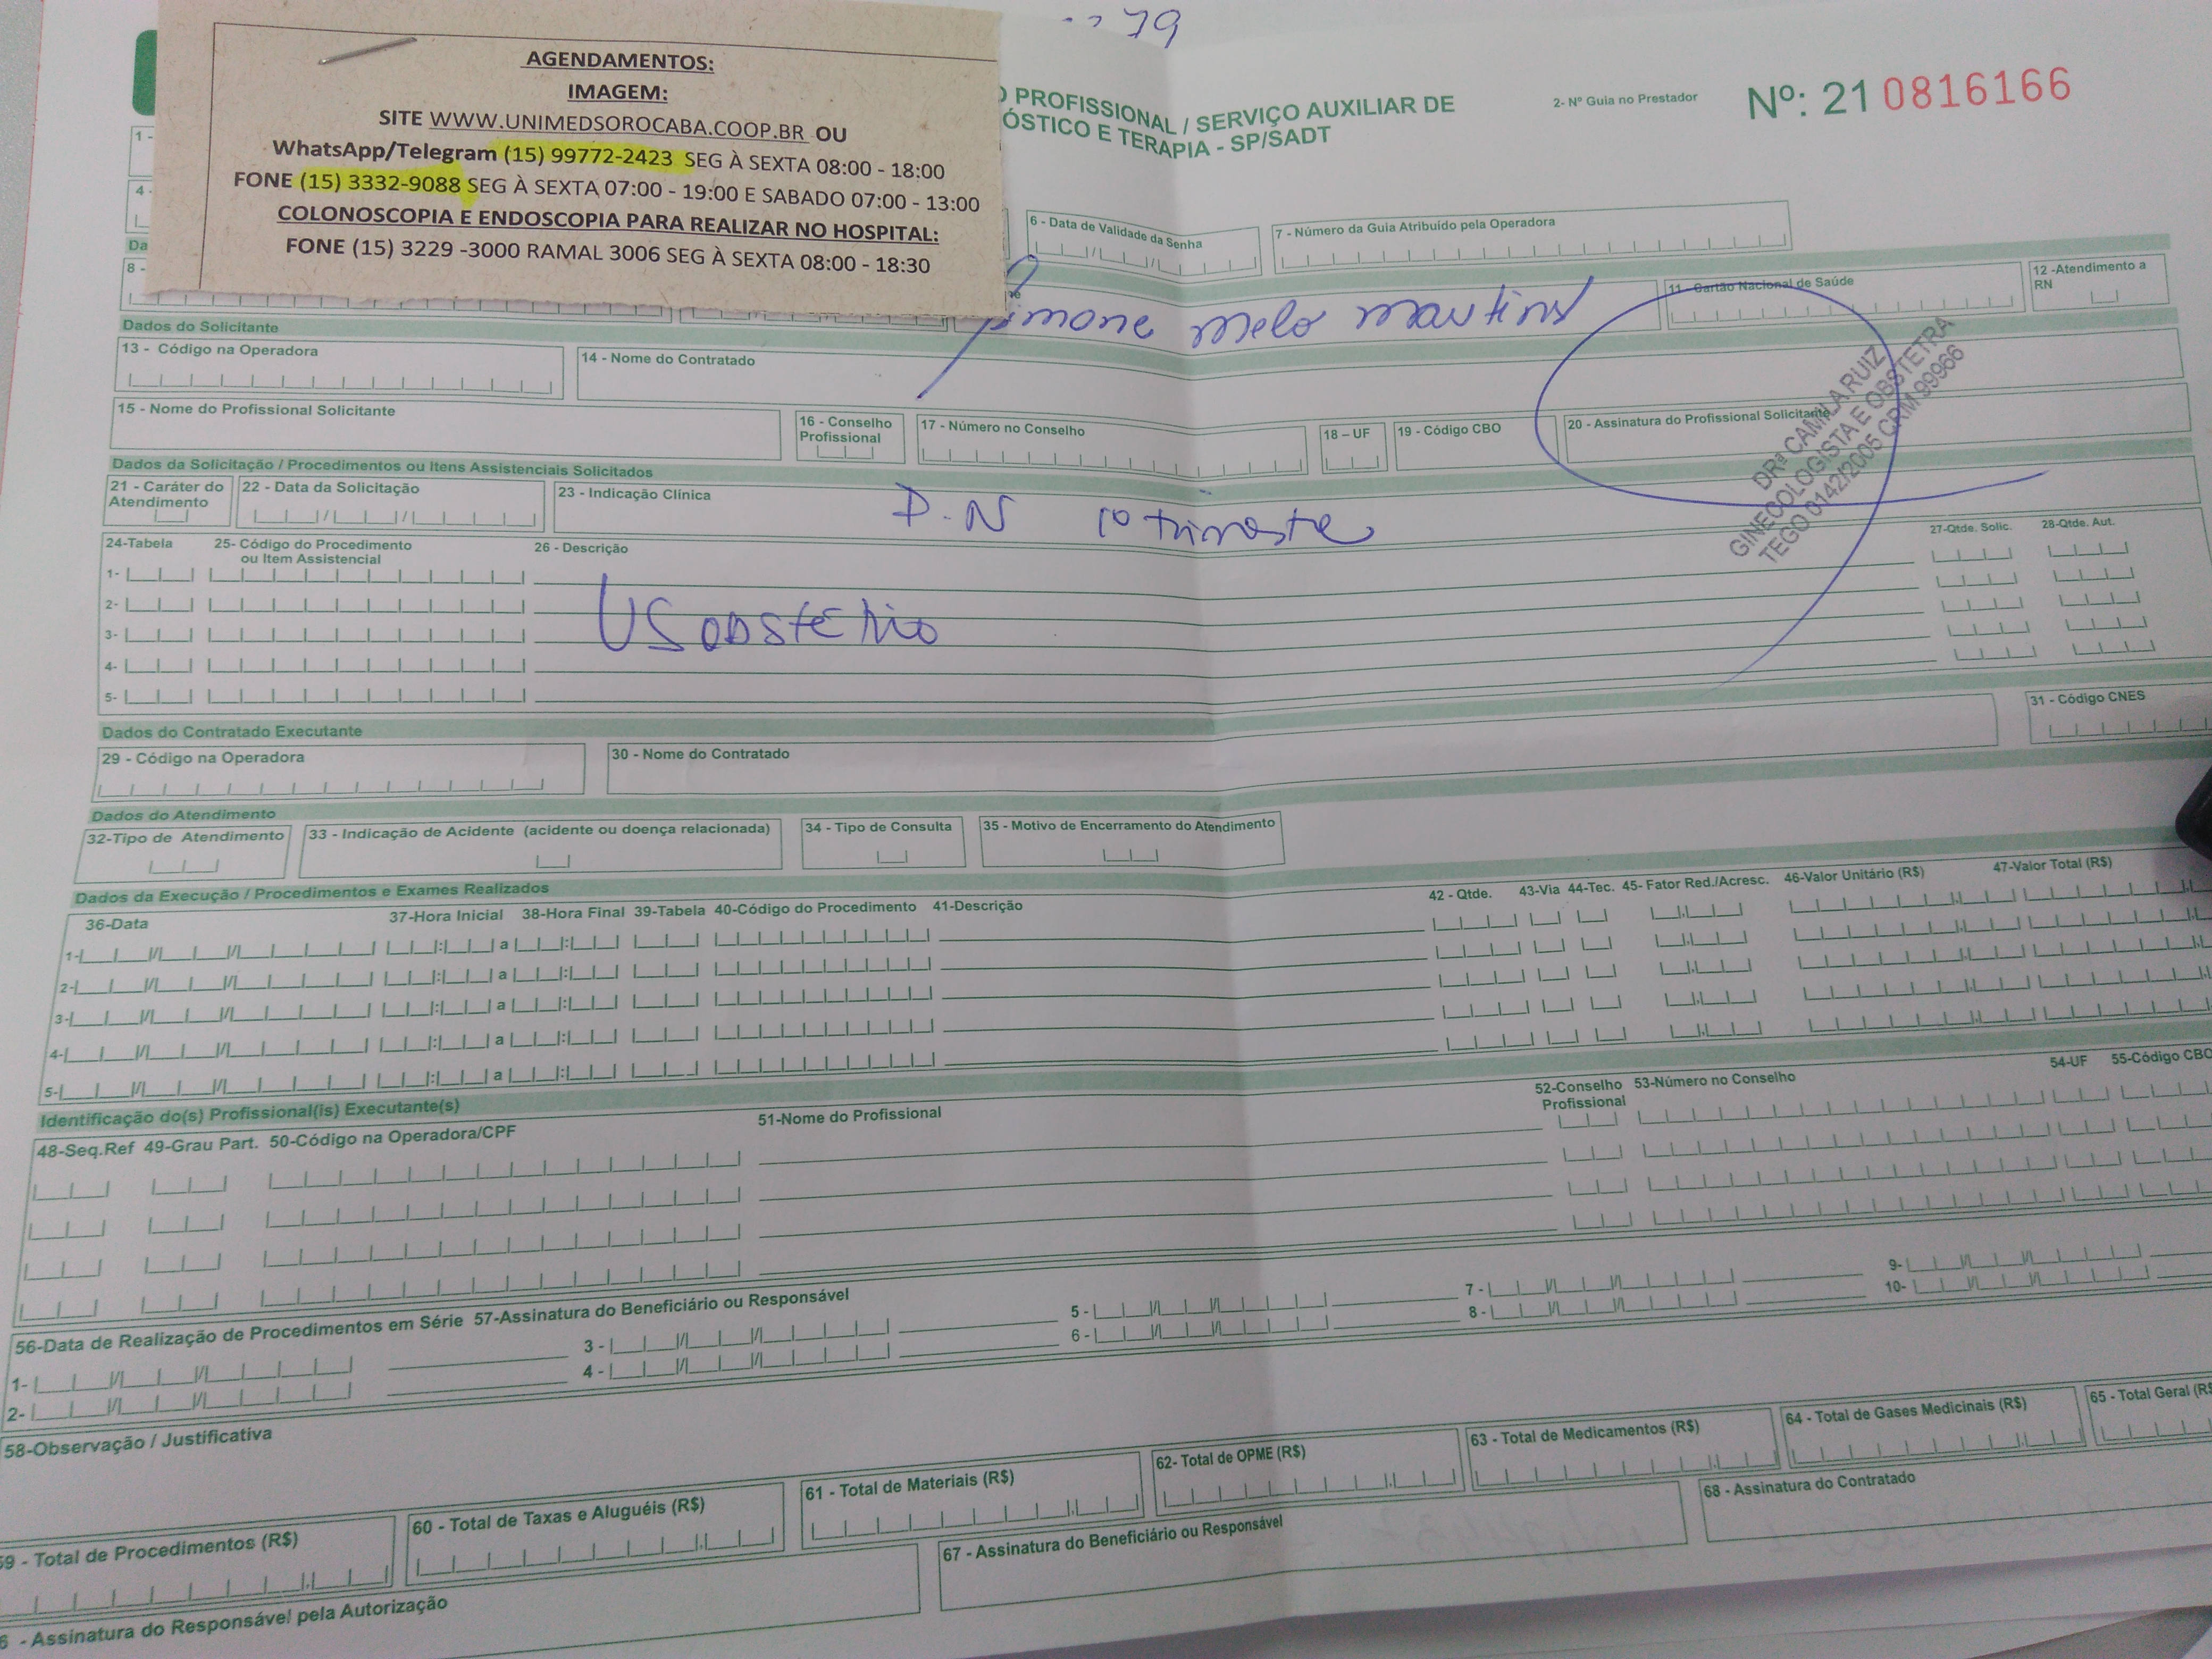 79
AGENDAMENTOS:
IMAGEM:
SITE WWW.UNIMEDSOROCABA.COOP.BR OU
WhatsApp/Telegram (15) 99772-2423 SEG À SEXTA 08:00 - 18:00
FONE (15) 3332-9088 SEG À SEXTA 07:00 - 19:00 E SABADO 07:00 - 13:00
COLONOSCOPIA E ENDOSCOPIA PARA REALIZAR NO HOSPITAL:
FONE (15) 3229 -3000 RAMAL 3006 SEG À SEXTA 08:00 - 18:30
PROFISSIONAL / SERVIÇO AUXILIAR DE
ÓSTICO E TERAPIA - SP/SADT
2- Nº Guia no Prestador
Nº: 21 0816166
1 -
4 -
6 - Data de Validade da Senha
7 - Número da Guia Atribuído pela Operadora
Da
8 -
Simone Melo Martins
11 - Cartão Nacional de Saúde
12 -Atendimento a RN
Dados do Solicitante
13 - Código na Operadora
14 - Nome do Contratado
15 - Nome do Profissional Solicitante
16 - Conselho Profissional
17 - Número no Conselho
18 – UF
19 - Código CBO
20 - Assinatura do Profissional Solicitante
DRª CAMILA RUIZ
GINECOLOGISTA E OBSTETRA
TEGO 0142/2005 CRM 99966
Dados da Solicitação / Procedimentos ou Itens Assistenciais Solicitados
21 - Caráter do Atendimento
22 - Data da Solicitação
23 - Indicação Clínica
P.N 1º trimestre
24-Tabela 25- Código do Procedimento ou Item Assistencial 26 - Descrição 27-Qtde. Solic. 28-Qtde. Aut.
1-
2-
US obstétrico
3-
4-
5-
Dados do Contratado Executante
29 - Código na Operadora
30 - Nome do Contratado
31 - Código CNES
Dados do Atendimento
32-Tipo de Atendimento
33 - Indicação de Acidente (acidente ou doença relacionada)
34 - Tipo de Consulta
35 - Motivo de Encerramento do Atendimento
Dados da Execução / Procedimentos e Exames Realizados
36-Data 37-Hora Inicial 38-Hora Final 39-Tabela 40-Código do Procedimento 41-Descrição 42 - Qtde. 43-Via 44-Tec. 45- Fator Red./Acresc. 46-Valor Unitário (R$) 47-Valor Total (R$)
1- a
2- a
3- a
4- a
5- a
Identificação do(s) Profissional(is) Executante(s)
48-Seq.Ref 49-Grau Part. 50-Código na Operadora/CPF 51-Nome do Profissional 52-Conselho Profissional 53-Número no Conselho 54-UF 55-Código CBO
56-Data de Realização de Procedimentos em Série 57-Assinatura do Beneficiário ou Responsável
1- 3 - 5 - 7 - 9-
2- 4 - 6 - 8 - 10-
58-Observação / Justificativa
59 - Total de Procedimentos (R$)
60 - Total de Taxas e Aluguéis (R$)
61 - Total de Materiais (R$)
62- Total de OPME (R$)
63 - Total de Medicamentos (R$)
64 - Total de Gases Medicinais (R$)
65 - Total Geral (R$
6 - Assinatura do Responsável pela Autorização
67 - Assinatura do Beneficiário ou Responsável
68 - Assinatura do Contratado